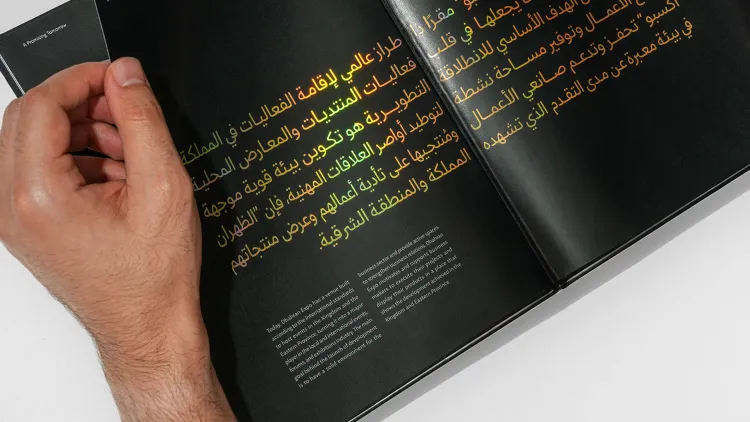 A Promising Tomorrow
طراز عالمي لإقامة الفعاليات في المملكة
يجعلها في قلب فعاليات المنتديات والمعارض المحلية
الهدف الأساسي للانطلاقة التطويرية هو تكوين بيئة قوية موجهة
الأعمال وتوفير مساحة نشطة لتوطيد أواصر العلاقات المهنية، فإن "الظهران
اكسبو" تحفز وتدعم صانعي الأعمال ومُنتجيها على تأدية أعمالهم وعرض منتجاتهم
في بيئة معبرة عن مدى التقدم الذي تشهده المملكة والمنطقة الشرقية.
Today, Dhahran Expo has a venue built
according to the international standards
to host events in the Kingdom and the
Eastern Province, turning it into a major
player in the local and international events,
forums, and exhibitions industry. The main
goal behind the launch of development
is to have a solid environment for the
business sector and provide active spaces
to strengthen business relations. Dhahran
Expo motivates and supports business
makers to execute their projects and
display their products in a place that
shows the development achieved in the
Kingdom and Eastern Province.